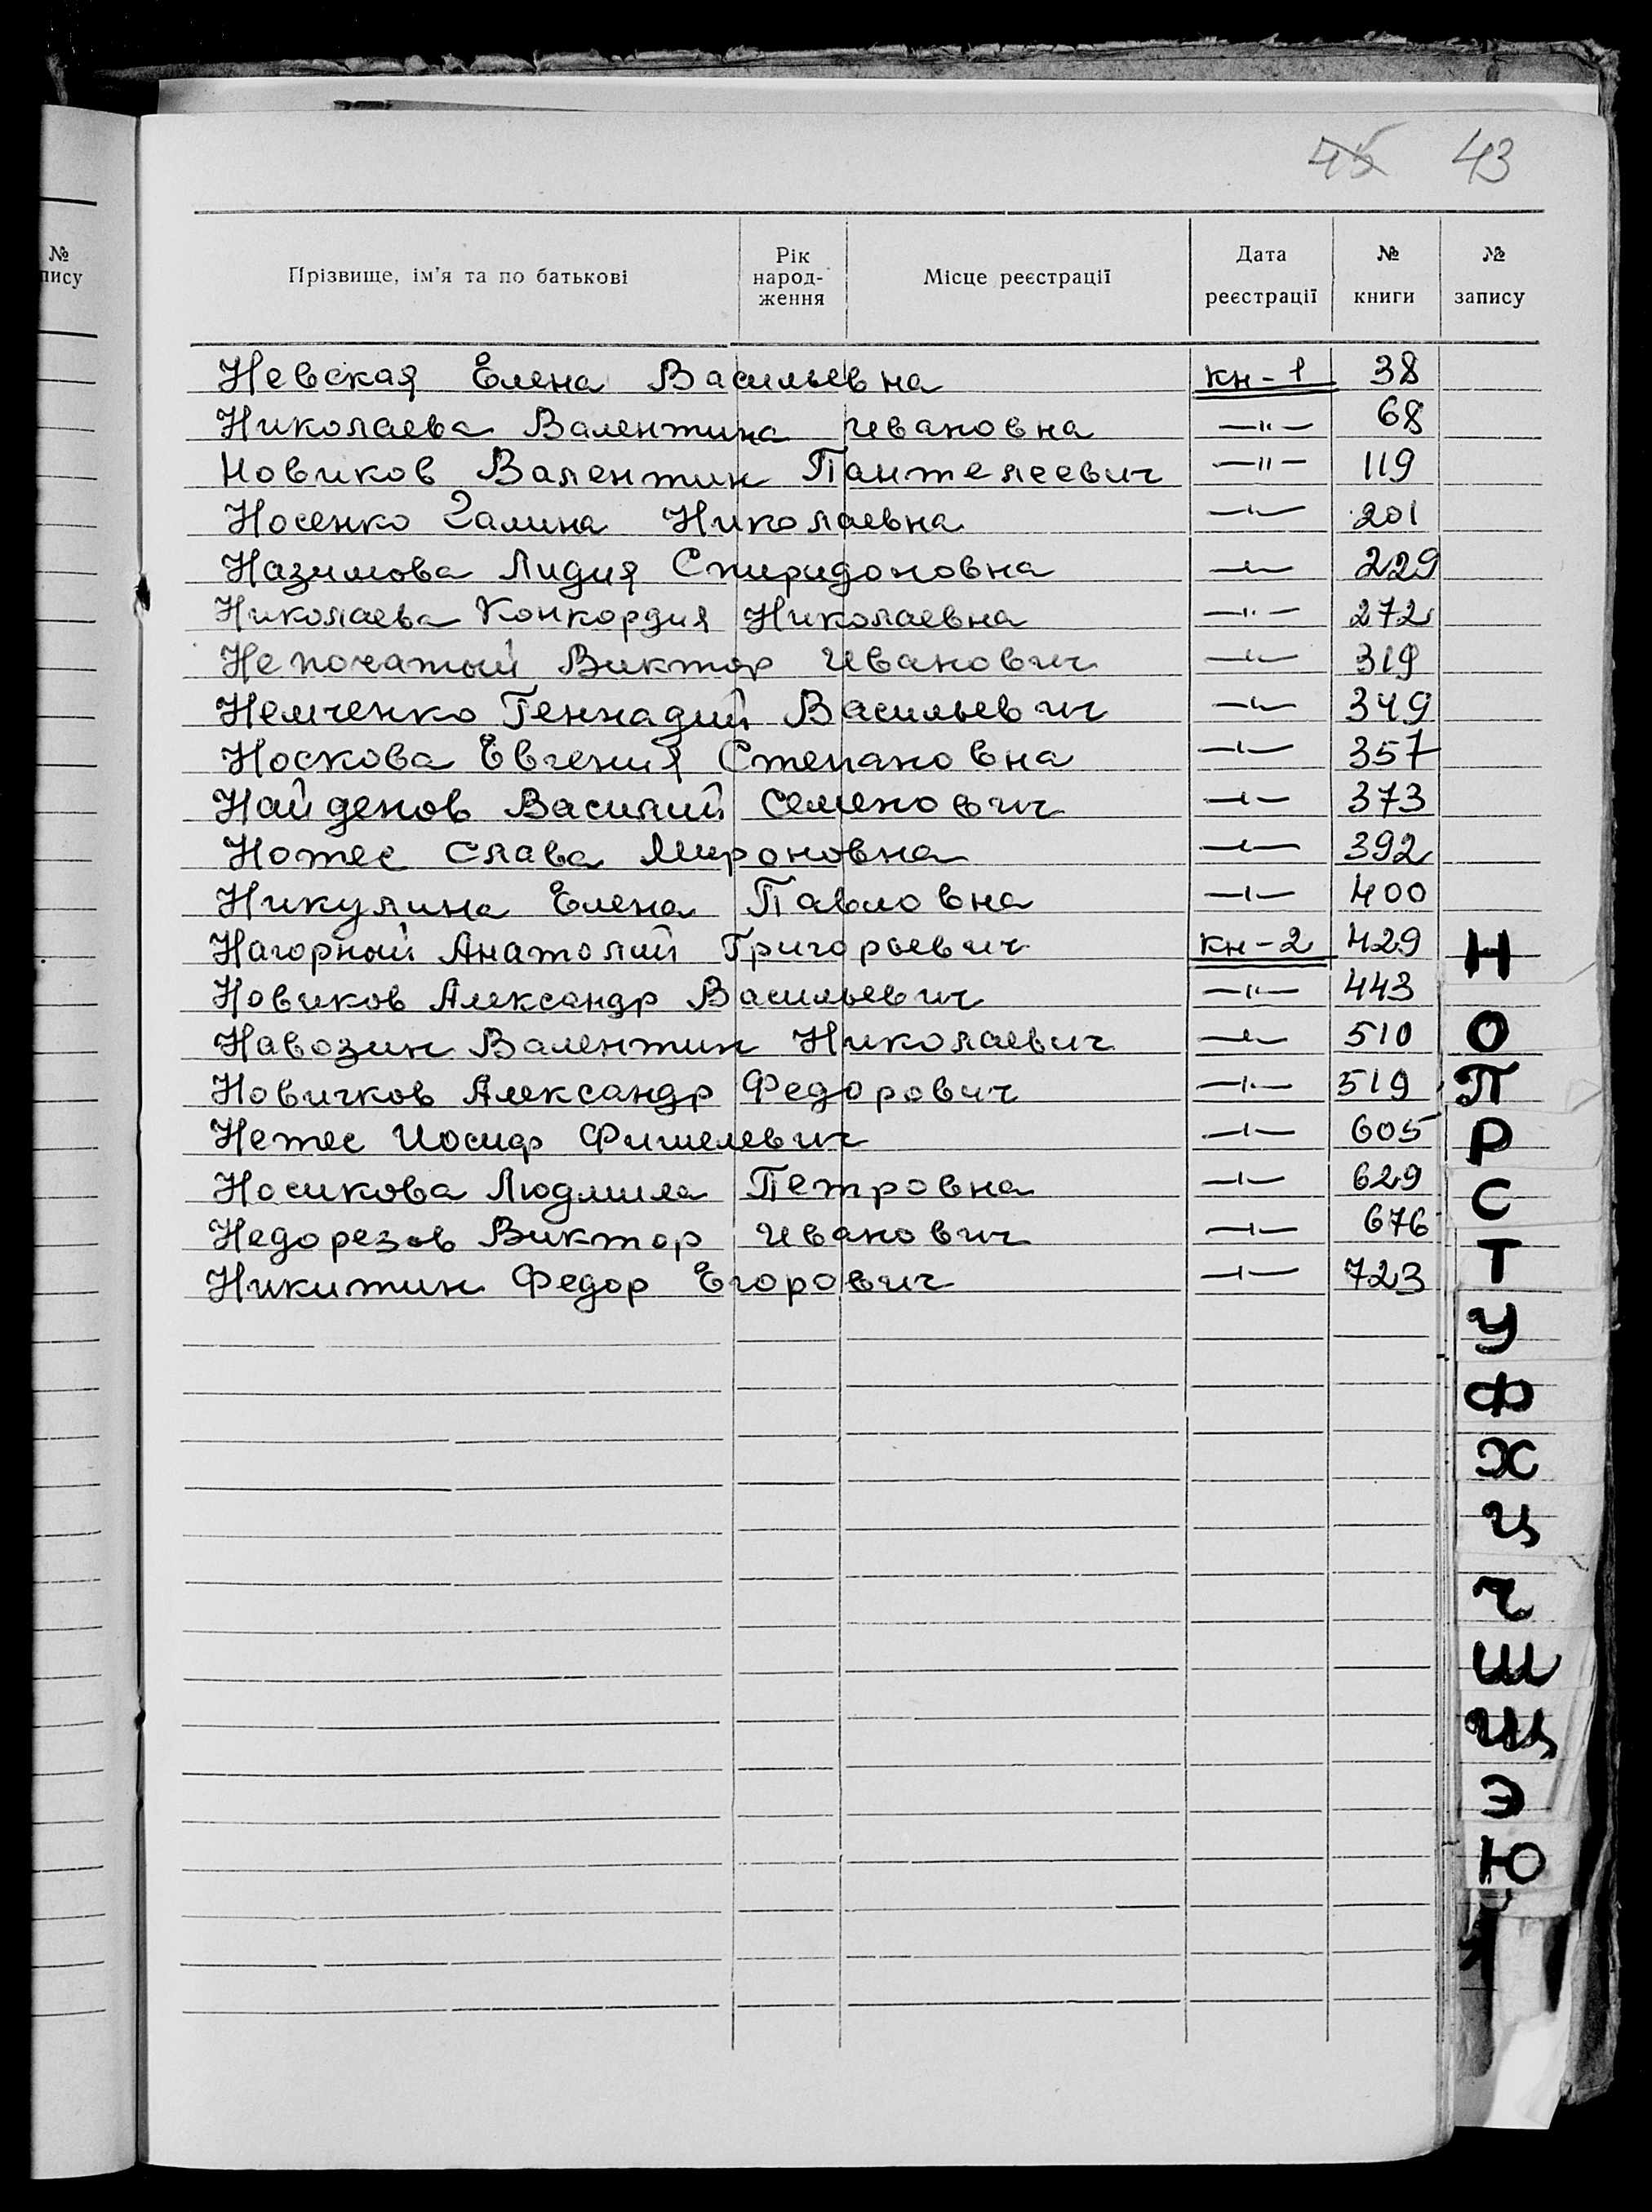 45 43
№
пису
Прізвище, ім'я та по батькові Рік народ-ження Місце реєстрації Дата реєстрації № книги № запису
Невская Елена Васильевна кн-1 38
Николаева Валентина Ивановна —"— 68
Новиков Валентин Пантелеевич —"— 119
Носенко Галина Николаевна —"— 201
Назимова Лидия Спиридоновна —"— 229
Николаева Конкордия Николаевна —"— 272
Непочатый Виктор Иванович —"— 319
Немченко Геннадий Васильевич —"— 349
Носкова Евгения Степановна —"— 357
Найденов Василий Семенович —"— 373
Нотес Слава Мироновна —"— 392
Никулина Елена Павловна —"— 400
Нагорный Анатолий Григорьевич кн-2 429
Новиков Александр Васильевич —"— 443
Навозин Валентин Николаевич —"— 510
Новичков Александр Федорович —"— 519
Нетес Иосиф Фишелевич —"— 605
Носикова Людмила Петровна —"— 629
Недорезов Виктор Иванович —"— 676
Никитин Федор Егорович —"— 723
Н
О
П
Р
С
Т
У
Ф
Х
Ц
Ч
Ш
Щ
Э
Ю